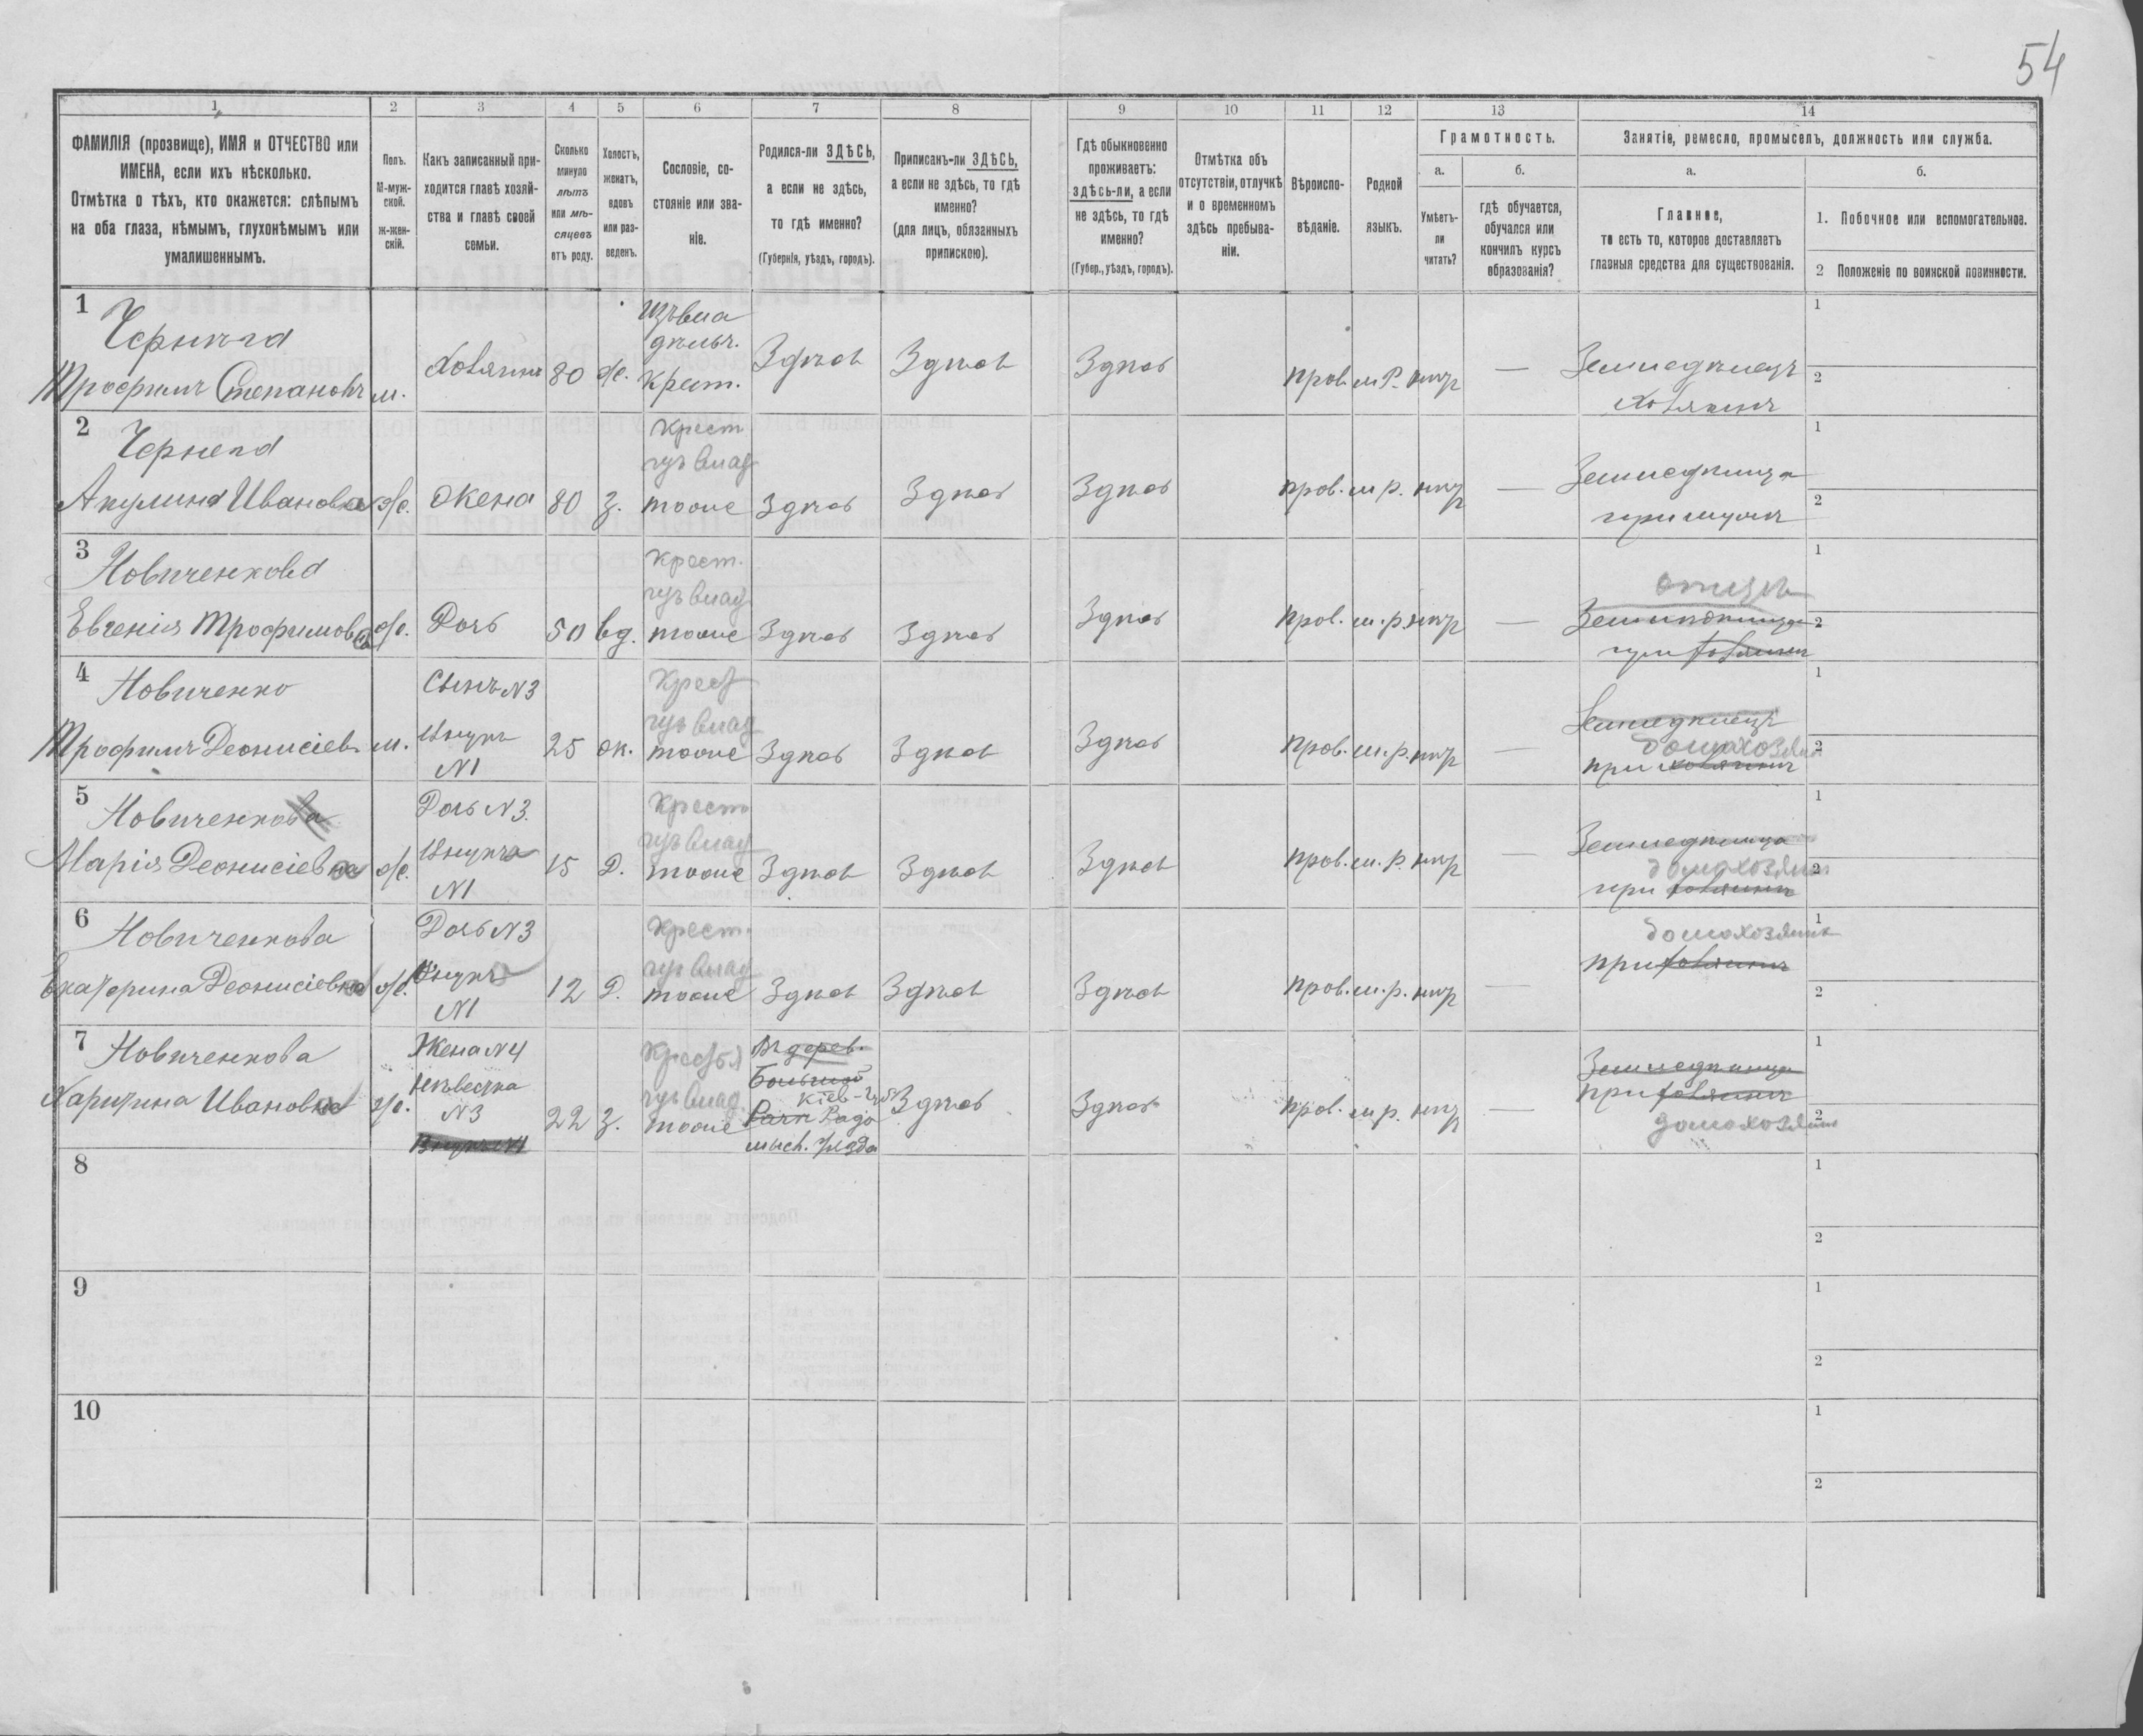 54
1 2 3 4 5 6 7 8 9 10 11 12 13 14
ФАМИЛІЯ (прозвище), ИМЯ и ОТЧЕСТВО или
ИМЕНА, если ихъ нѣсколько.
Отмѣтка о тѣхъ, кто окажется: слѣпымъ
на оба глаза, нѣмымъ, глухонѣмымъ или
умалишеннымъ.
Полъ.
М-муж-
ской.
Ж-жен-
скій.
Какъ записанный при-
ходится главѣ хозяй-
ства и главѣ своей
семьи.
Сколько
минуло
лѣтъ
или мѣ-
сяцевъ
отъ роду.
Холостъ,
женатъ,
вдовъ
или раз-
веденъ.
Сословіе, со-
стояніе или зва-
ніе.
Родился-ли ЗДѢСЬ,
а если не здѣсь,
то гдѣ именно?
(Губернія, уѣздъ, городъ).
Приписанъ-ли ЗДѢСЬ,
а если не здѣсь, то гдѣ
именно?
(для лицъ, обязанныхъ
припискою).
Гдѣ обыкновенно
проживаетъ:
здѣсь-ли, а если
не здѣсь, то гдѣ
именно?
(Губер., уѣздъ, городъ).
Отмѣтка объ
отсутствіи, отлучкѣ
и о временномъ
здѣсь пребыва-
ніи.
Вѣроиспо-
вѣданіе.
Родной
языкъ.
Грамотность.
а.
Умѣетъ-
ли
читать?
б.
гдѣ обучается,
обучался или
кончилъ курсъ
образованія?
Занятіе, ремесло, промыселъ, должность или служба.
а.
Главное,
то есть то, которое доставляетъ
главныя средства для существованія.
б.
1. Побочное или вспомогательное.
2 Положеніе по воинской повинности.
1
Чернѣга
Трофимъ Степановъ м. Хозяинъ 80 ж. Изъ вла
дѣльч.
крест. Здѣсь Здѣсь Здѣсь прав. м.р. нѣт — Земледѣлецъ
хозяинъ
1
2
2
Чернега
Акулина Ивановна ж. Жена 80 з. Крест
изъ влад
тоже Здѣсь Здѣсь Здѣсь прав. м.р. нѣт — Земледѣлица
при мужѣ
1
2
3
Новиченкова
Евгенія Трофимова ж. Дочь 50 вд. Крест.
изъ влад
тоже Здѣсь Здѣсь Здѣсь прав. м.р. нѣт — отцѣ
Земледѣлица
при хозяинѣ
1
2
4
Новиченко
Трофимъ Деонисіев м. Сынъ N3
Внукъ
N1 25 ж. Крест
изъ влад
тоже Здѣсь Здѣсь Здѣсь прав. м.р. нѣт — Земледѣлецъ
домохозяин
при хозяинѣ
1
2
5
Новиченкова
Марія Деонисіевна ж. Дочь N3.
Внучка
N1 15 д. Крест
изъ влад
тоже Здѣсь Здѣсь Здѣсь прав. м.р. нѣт — Земледѣлица
домохозяин
при хозяинѣ
1
2
6
Новиченкова
Екатерина Деонисіевна ж. Дочь N3
Внучка
N1 12 д. Крест.
изъ влад
тоже Здѣсь Здѣсь Здѣсь прав. м.р. нѣт — домохозяинѣ
при хозяинѣ
1
2
7
Новиченкова
Харитина Ивановна ж. Жена N4
Невѣстка
N3
22 з. Крестья
изъ влад
тоже Въ дерев.
Кіев-
Радо
мысл. уѣзда Здѣсь Здѣсь прав. м.р. нѣт — Земледѣлица
при хозяинѣ
домохозяин
1
2
8
1
2
9
1
2
10
1
2